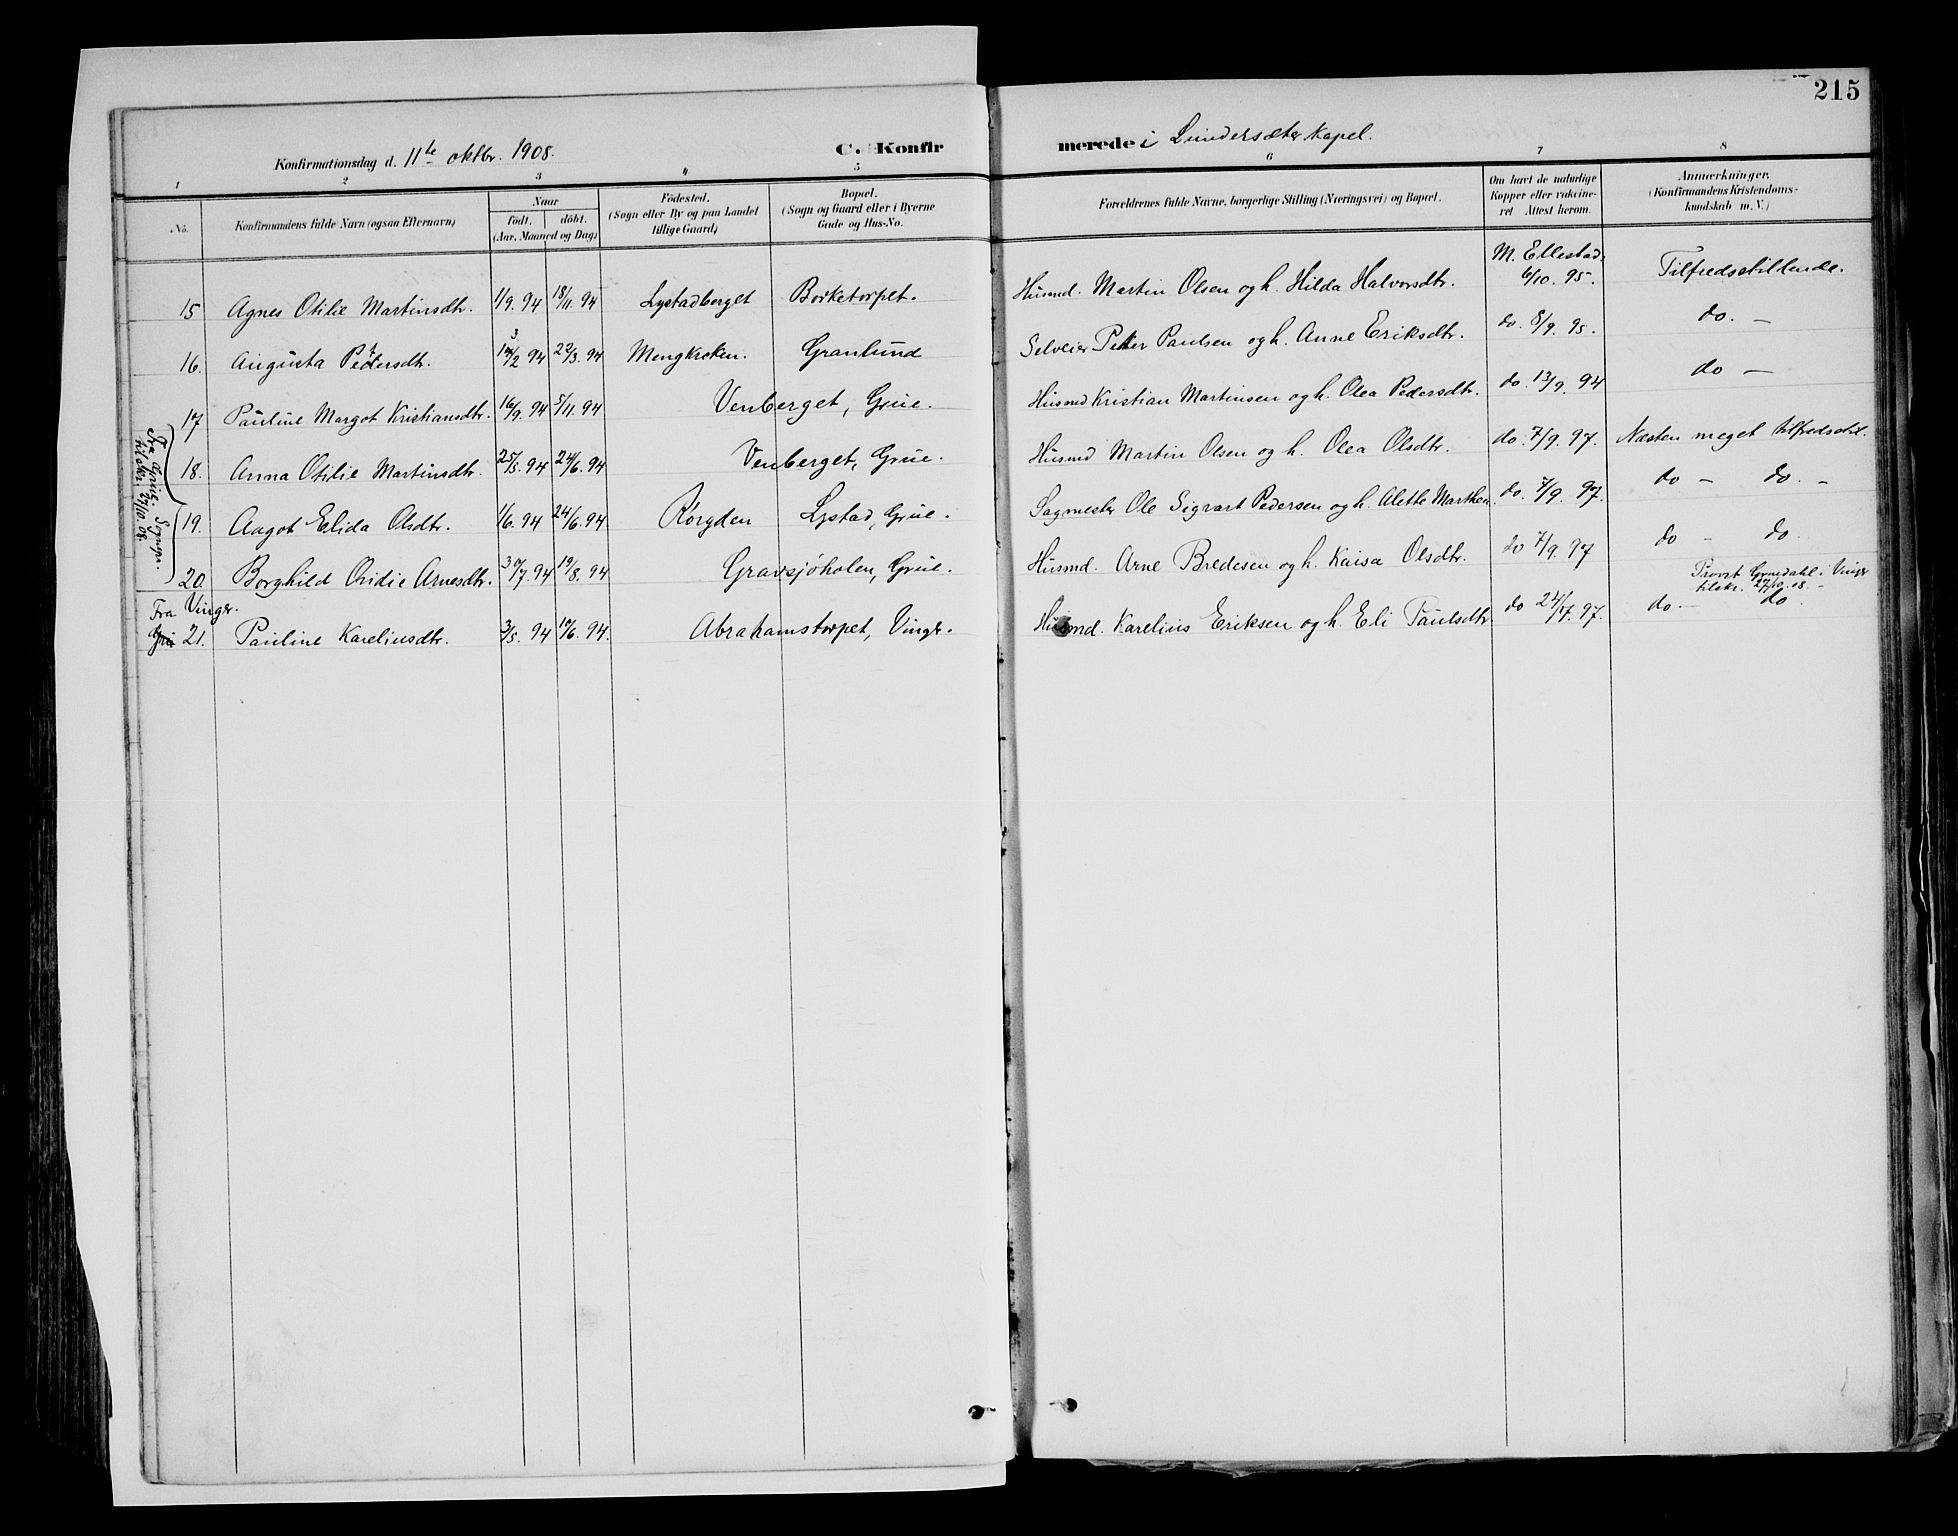 215
Konfirmationsdag d. 11te oktbr. 1908. C. Konfir merede i Lundersæter Kapel.
1 2 3 4 5 6 7 8
No.
Konfirmandens fulde Navn (ogsaa Efternavn)
Naar
født. døbt.
(Aar, Maaned og Dag)
Fødested.
(Sogn eller By og paa Landet
tillige Gaard)
Bopæl.
(Sogn og Gaard eller i Byerne
Gade og Hus-No.
Forældrenes fulde Navne, borgerlige Stilling (Næringsvei) og Bopæl.
Om havt de naturlige
Kopper eller vakcine-
ret Attest herom.
Anmærkninger.
(Konfirmandens Kristendoms-
kundskab m. V.)
15 Agnes Otilie Martinsdtr. 1/9. 94 18/11 94 Lystadberget Borketorpet. Husmd. Martin Olsen og h. Hilda Halvorsdtr. M. Ellestad. 6/10. 95. Tilfredsstillende.
16. Augusta Pettersdtr. 3/2 94 22/3. 94 Mengkroken. Granlund Selveier Petter Paulsen og h. Anne Eriksdtr. do. 8/9. 95. do. —
17 Pauline Margot Kristiansdtr. 16/9. 94 5/11. 94 Venberget, Grue. Husmd Kristian Martinsen og h. Olea Pedersdtr. do. 13/9. 94 do —
18. Anna Otidie Martinsdtr. 25/5. 94 24/6. 94 Venberget, Grue. Husmd Martin Olsen og h. Olea Olsdtr. do. 7/9. 97. Næsten meget tilfredsstil.
19. Aagot Elida Olsdtr. 1/6. 94 24/6. 94 Rögden Lystad, Grue. Sagmester Ole Sigvart Pedersen og h. Alette Marthea. do. 7/9. 97. do — do. —
20. Borghild Ovidie Arnesdtr. 30/7. 94 19/8. 94 Gravsjøholen, Grue. Husmd. Arne Bredesen og h. Kaisa Olsdtr. do 7/9. 97 do — do.
Fra Grue Sogn
tilskr. 27/10 08.
Provst i Vinger
tilskr. 27/10. 08. —
Fra Vinger.
21. Pauline Kareliusdtr. 3/5. 94 10/6. 94. Abrahamstorpet, Vinger. Husmd. Karelius Eriksen og h. Eli Paulsdtr do 24/7. 97. do. — do.